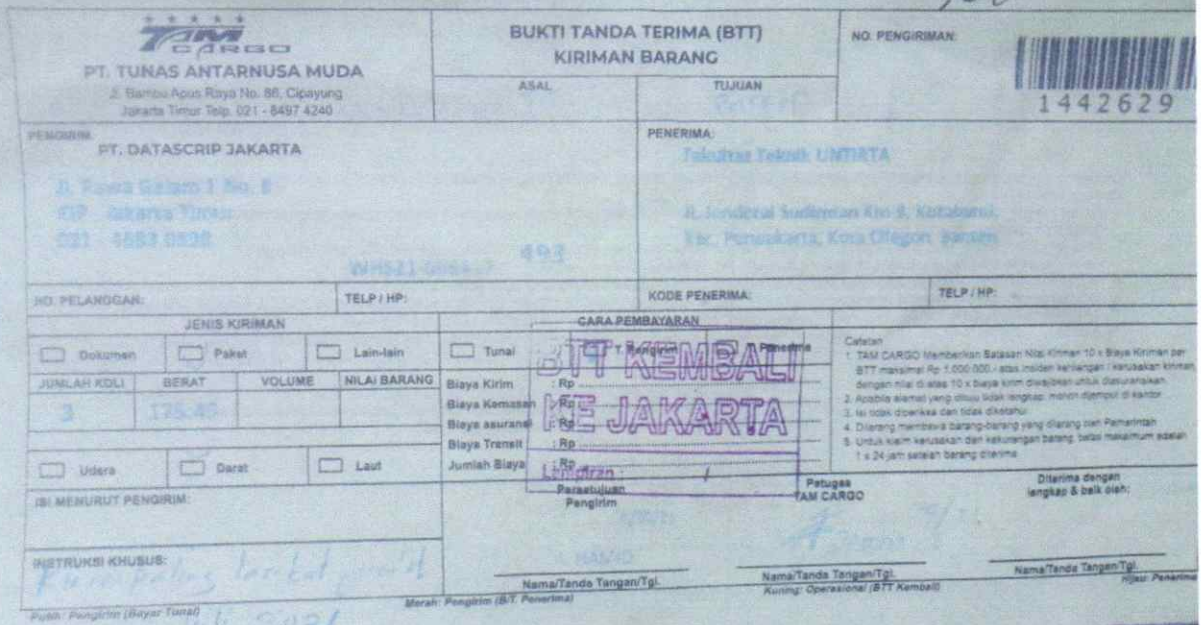 TAM
CARGO
PT. TUNAS ANTARNUSA MUDA
Jl. Bambu Apus Raya No. 86, Cipayung
Jakarta Timur Telp. 021 - 8497 4240
BUKTI TANDA TERIMA (BTT)
KIRIMAN BARANG
ASAL
TUJUAN
NO. PENGIRIMAN:
1442629
PENGIRIM:
PT. DATASCRIP JAKARTA
Jl. Rawa Gelam 1 No. 8
Jakarta Timur
493
PENERIMA:
Fakultas Teknik UNTIRTA
Jl. Jenderal Sudirman Km 3, Kotabumi,
Kec. Purwakarta, Kota Cilegon, Banten
NO. PELANGGAN:
TELP / HP:
KODE PENERIMA:
TELP / HP:
JENIS KIRIMAN
Dokumen
Paket
Lain-lain
JUMLAH KOLI
BERAT
VOLUME
NILAI BARANG
3
Udara
Darat
Laut
CARA PEMBAYARAN
Tunai
T. Pengirim
Penerima
Biaya Kirim : Rp
Biaya Kemasan : Rp
Biaya asuransi : Rp
Biaya Transit : Rp
Jumlah Biaya : Rp
BTT KEMBALI
KE JAKARTA
Lampiran :
Catatan
1. TAM CARGO Memberikan Batasan Nilai Kiriman 10 x Biaya Kiriman per
BTT maksimal Rp 1.000.000,- atas insiden kehilangan / kerusakan kiriman,
dengan nilai di atas 10 x biaya kirim diwajibkan untuk diasuransikan.
2. Apabila alamat yang dituju tidak lengkap, mohon dijemput di kantor
3. Isi tidak diperiksa dan tidak diketahui
4. Dilarang membawa barang-barang yang dilarang oleh Pemerintah
5. Untuk klaim kerusakan dan kekurangan barang, batas maksimum adalah
1 x 24 jam setelah barang diterima
ISI MENURUT PENGIRIM:
INSTRUKSI KHUSUS:
Persetujuan
Pengirim
Nama/Tanda Tangan/Tgl.
Petugas
TAM CARGO
Nama/Tanda Tangan/Tgl.
Diterima dengan
lengkap & baik oleh:
Nama/Tanda Tangan/Tgl.
Putih: Pengirim (Bayar Tunai)
Merah: Pengirim (B/T. Penerima)
Kuning: Operasional (BTT Kembali)
Hijau: Penerima